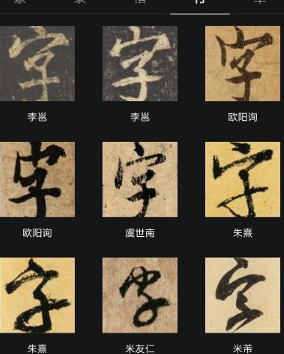 篆 隶 楷 行 草
字 字 字
李邕 李邕 欧阳询
字 字 字
欧阳询 虞世南 朱熹
字 字 字
朱熹 米友仁 米芾